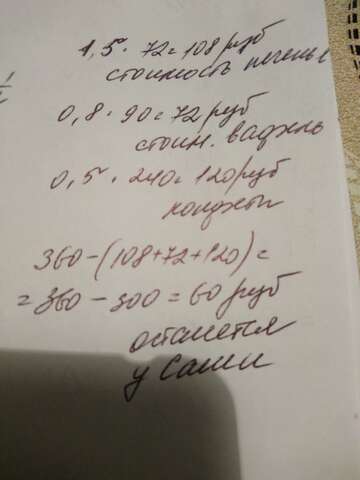 1,5 · 72 = 108 руб
стоимость печенья
0,8 · 90 = 72 руб
стоим. вафель
0,5 · 240 = 120 руб
конфеты
360-(108+72+120) =
= 360 - 300 = 60 руб
останется
у Саши